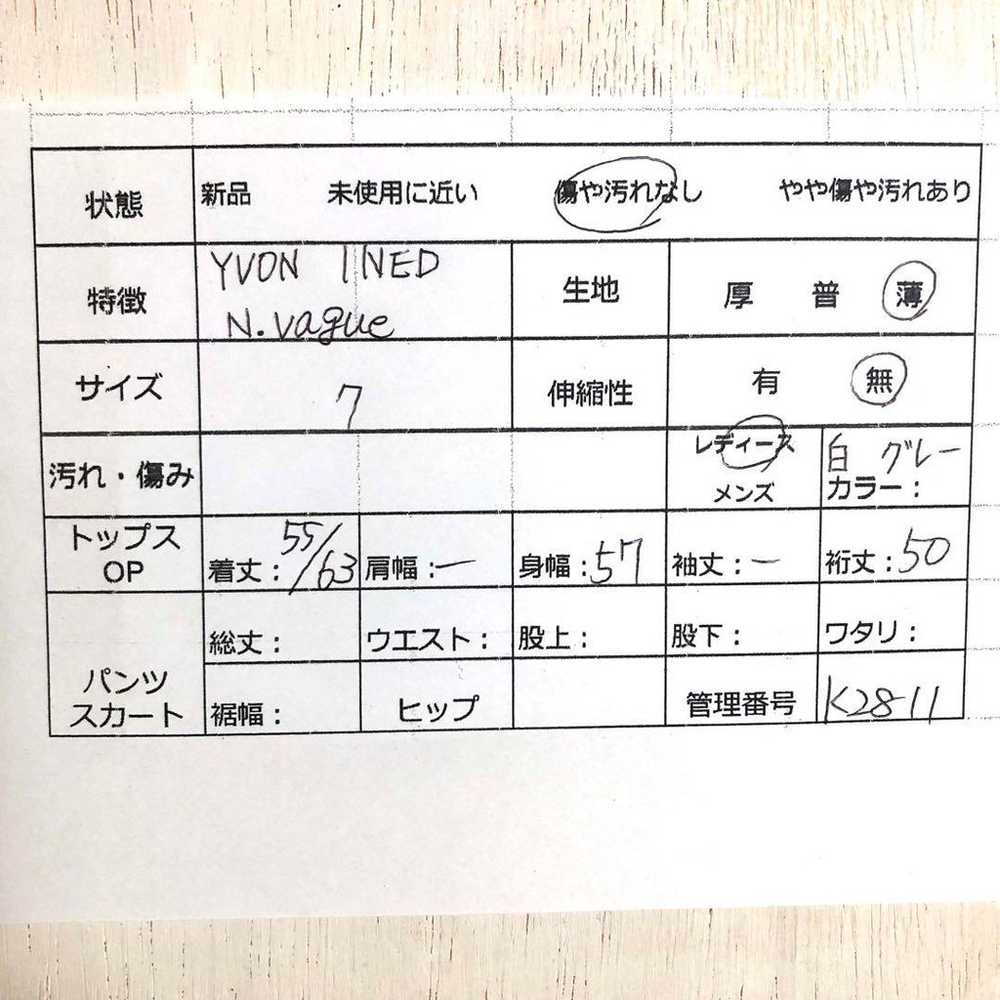 状態 新品 未使用に近い 傷や汚れなし やや傷や汚れあり
特徴 YVON INED N.vague 生地 厚 普 薄
サイズ 7 伸縮性 有 無
汚れ・傷み レディース メンズ 白 グレー カラー：
トップス OP 着丈：55/63 肩幅：— 身幅：57 袖丈：— 裄丈：50
パンツ スカート 総丈： ウエスト： 股上： 股下： ワタリ：
裾幅： ヒップ 管理番号 K2811